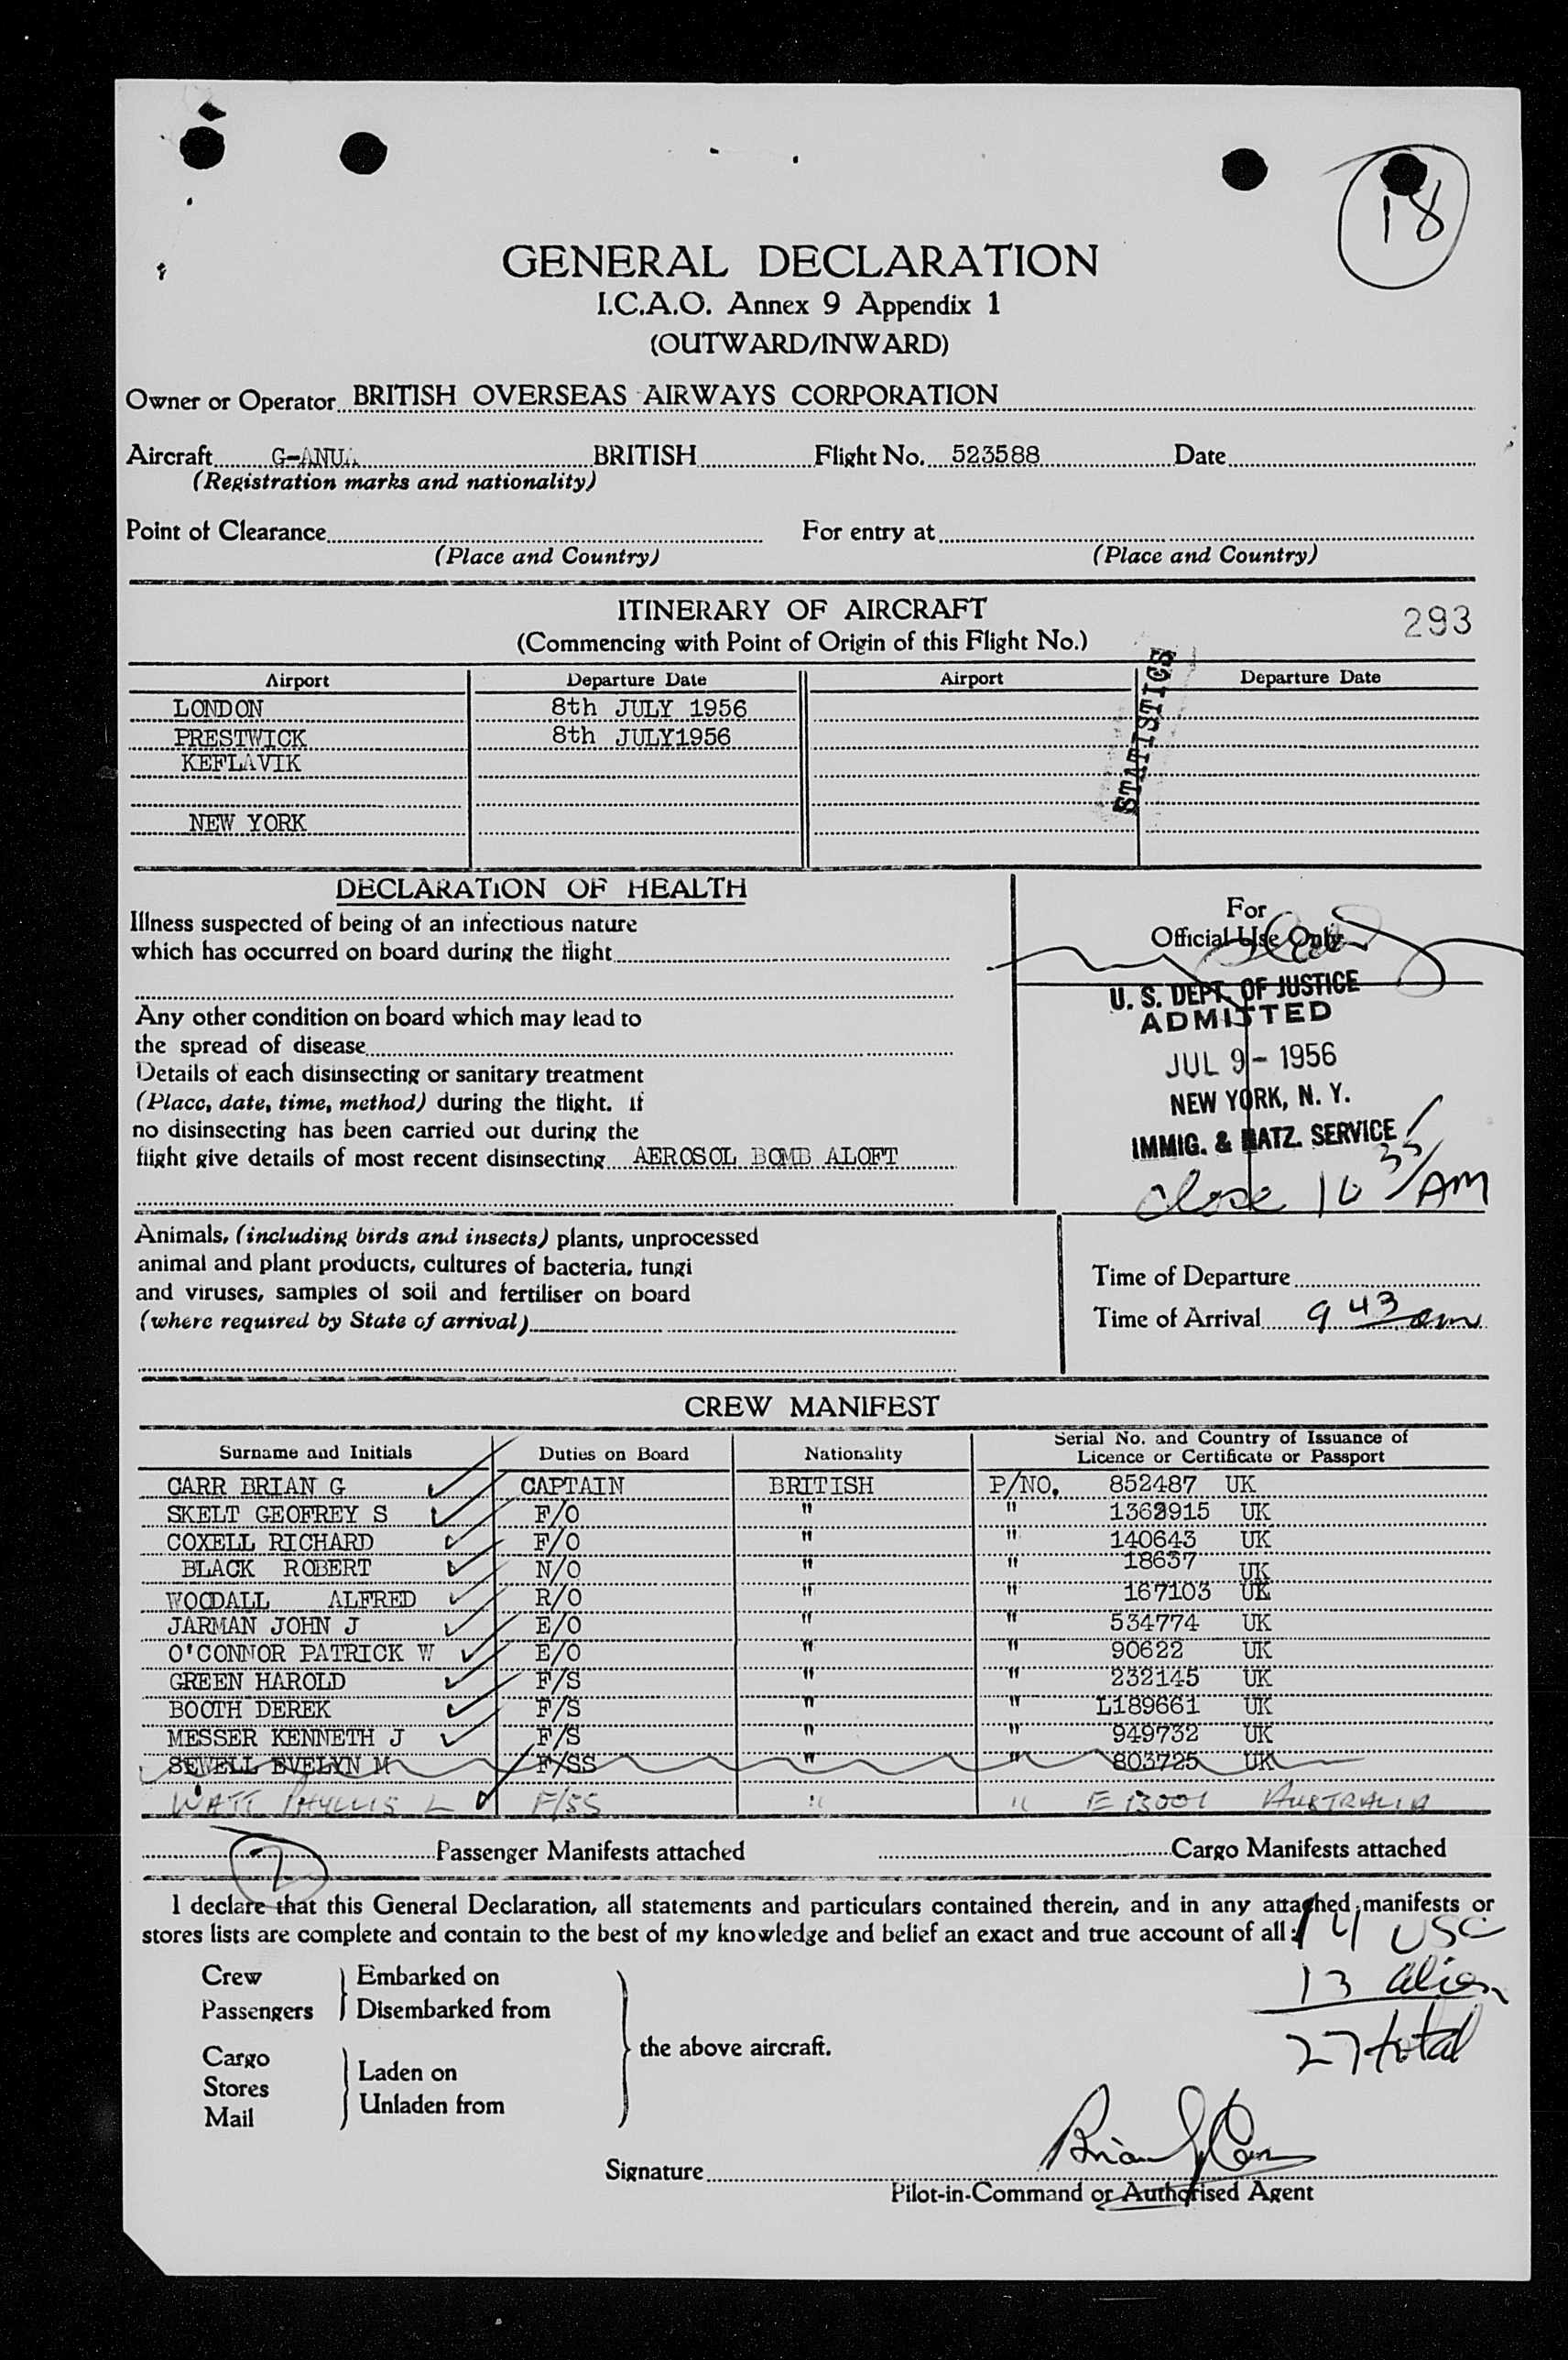 18
GENERAL DECLARATION
I.C.A.O. Annex 9 Appendix 1
(OUTWARD/INWARD)
Owner or Operator BRITISH OVERSEAS AIRWAYS CORPORATION
Aircraft G-ANU BRITISH Flight No. 523588 Date
(Registration marks and nationality)
Point of Clearance For entry at
(Place and Country) (Place and Country)
ITINERARY OF AIRCRAFT
293
(Commencing with Point of Origin of this Flight No.)
STATISTICS
Airport Departure Date Airport Departure Date
LONDON 8th JULY 1956
PRESTWICK 8th JULY1956
KEFLAVIK
NEW YORK
DECLARATION OF HEALTH
Illness suspected of being of an infectious nature
which has occurred on board during the flight
Any other condition on board which may lead to
the spread of disease
Details of each disinsecting or sanitary treatment
(Place, date, time, method) during the flight. If
no disinsecting has been carried out during the
flight give details of most recent disinsecting AEROSOL BOMB ALOFT
For
Official Use Only
U. S. DEPT. OF JUSTICE
ADMITTED
JUL 9 - 1956
NEW YORK, N. Y.
IMMIG. & NATZ. SERVICE
Close 10 35 AM
Animals, (including birds and insects) plants, unprocessed
animal and plant products, cultures of bacteria, fungi
and viruses, samples of soil and fertiliser on board
(where required by State of arrival)
Time of Departure
Time of Arrival 9 43 am
CREW MANIFEST
Surname and Initials Duties on Board Nationality Serial No. and Country of Issuance of
Licence or Certificate or Passport
CARR BRIAN G CAPTAIN BRITISH P/NO. 852487 UK
SKELT GEOFREY S F/O " " 1362915 UK
COXELL RICHARD F/O " " 140643 UK
BLACK ROBERT N/O " " 18637 UK
WOODALL ALFRED R/O " " 167103 UK
JARMAN JOHN J E/O " " 534774 UK
O'CONNOR PATRICK W E/O " " 90622 UK
GREEN HAROLD F/S " " 232145 UK
BOOTH DEREK F/S " " L189661 UK
MESSER KENNETH J F/S " " 949732 UK
SEWELL EVELYN M F/SS " " 803725 UK
WATT PHYLLIS L F/SS " " E 13001 AUSTRALIA
2 Passenger Manifests attached Cargo Manifests attached
I declare that this General Declaration, all statements and particulars contained therein, and in any attached manifests or
stores lists are complete and contain to the best of my knowledge and belief an exact and true account of all :
14 USC
13 alien
27 total
Crew Embarked on
Passengers Disembarked from
the above aircraft.
Cargo
Stores Laden on
Mail Unladen from
Signature Brian G Carr
Pilot-in-Command or Authorised Agent